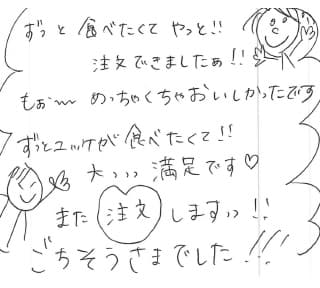 ずっと 食べたくて やっと!!
注文できましたぁ!!
もぉ〜 めっちゃくちゃおいしかったです
ずっとユッケが食べたくて!!
大,,,, 満足です♡
また 注文 しますッ!!
ごちそうさまでした!!!